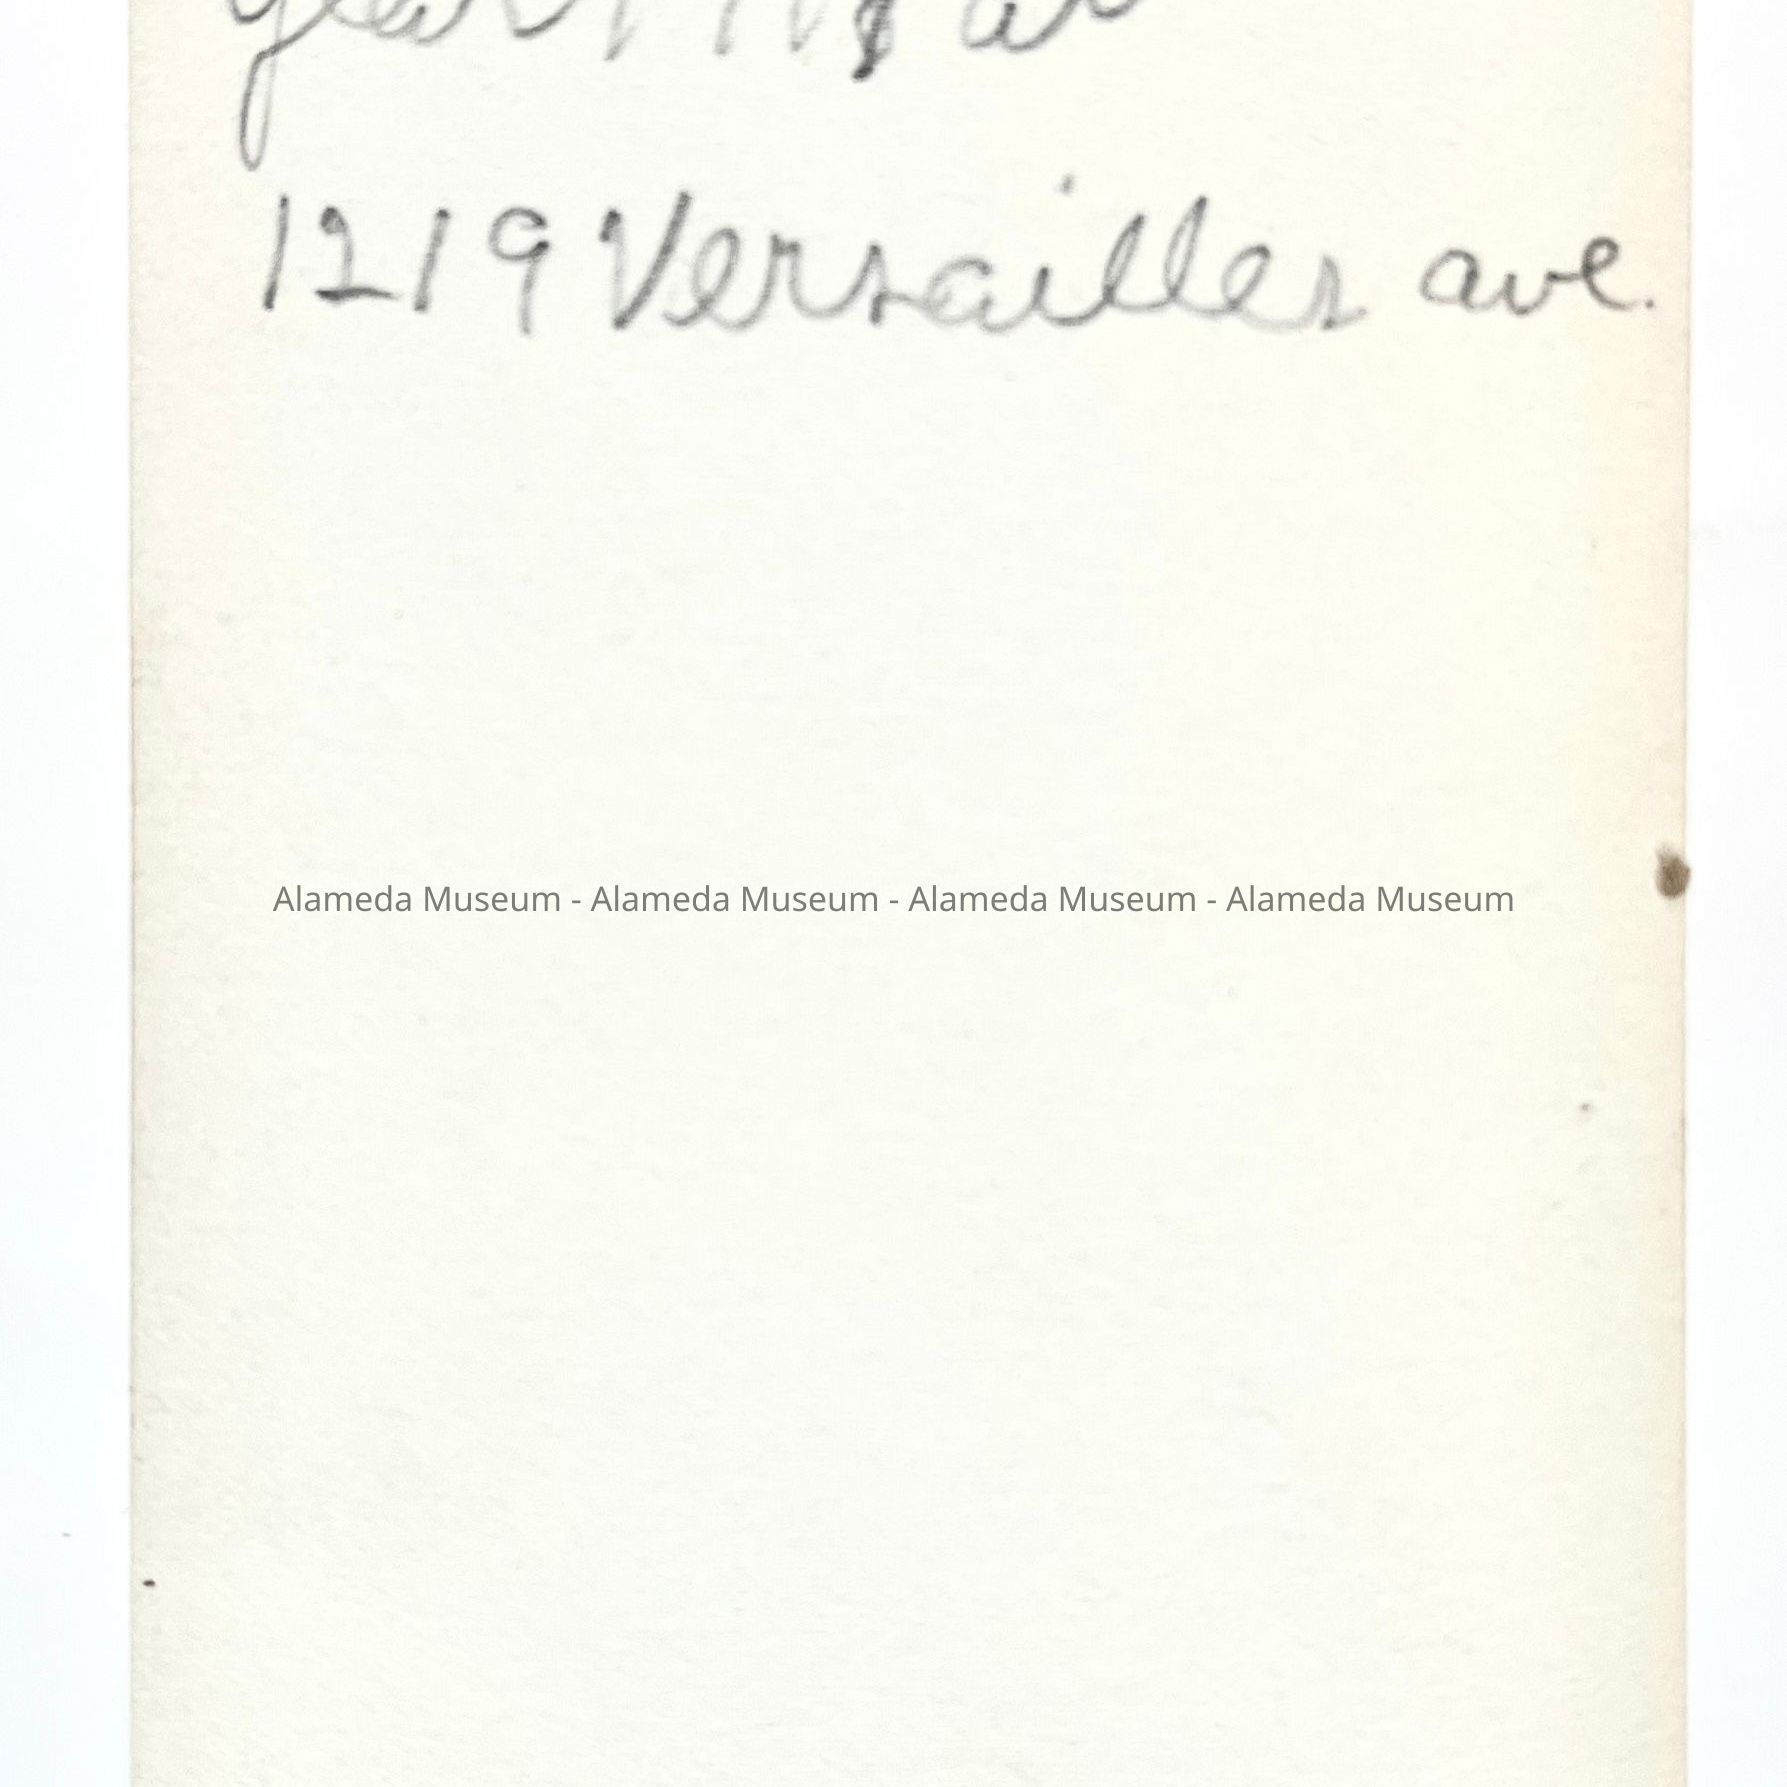 1219 Versailles ave.
Alameda Museum - Alameda Museum - Alameda Museum - Alameda Museum